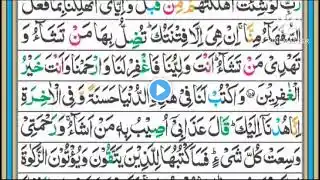 رَبِّ لَوْ شِئْتَ اَهْلَكْتَهُمْ مِّنْ قَبْلُ وَ اِیَّایَ ؕ اَتُهْلِكُنَا بِمَا فَعَلَ
السُّفَهَآءُ مِنَّا ۚ اِنْ هِیَ اِلَّا فِتْنَتُكَ ؕ تُضِلُّ بِهَا مَنْ تَشَآءُ وَ
تَهْدِیْ مَنْ تَشَآءُ ؕ اَنْتَ وَلِیُّنَا فَاغْفِرْ لَنَا وَ ارْحَمْنَا وَ اَنْتَ خَیْرُ
الْغٰفِرِیْنَ وَ اكْتُبْ لَنَا فِیْ هٰذِهِ الدُّنْیَا حَسَنَةً وَّ فِی الْاٰخِرَةِ
اِنَّا هُدْنَاۤ اِلَیْكَ ؕ قَالَ عَذَابِیْۤ اُصِیْبُ بِهٖ مَنْ اَشَآءُ ۚ وَ رَحْمَتِیْ
وَسِعَتْ كُلَّ شَیْءٍ ؕ فَسَاَكْتُبُهَا لِلَّذِیْنَ یَتَّقُوْنَ وَ یُؤْتُوْنَ الزَّكٰوةَ